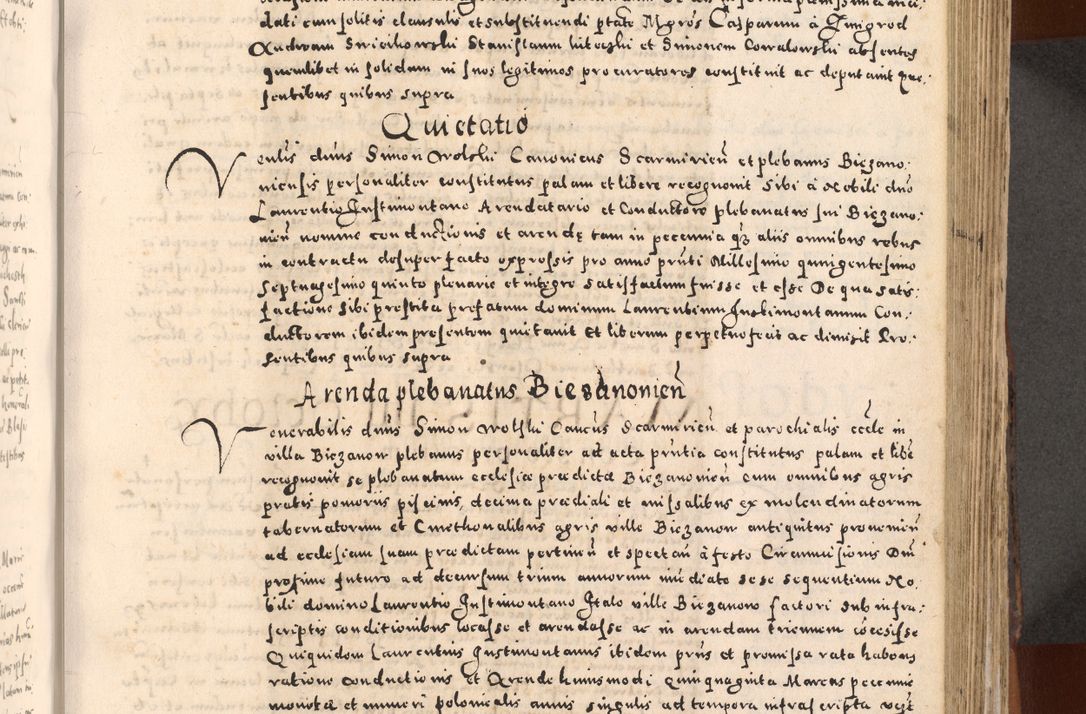 dati cum solitis clausulis et substituendi ptate Mgros Casparum à Zmigrod
Andream Swiecihowski Stanislaum et Simonem Cowalowski absentes
quemlibet in solidum in suos legitimos procuratores constituit ac deputauit Prę:
sentibus quibus supra
Quietatio
Venlis dnus Simon Wolski Canonicus Scarmirień et plebanus Biezano:
niensis personaliter constitutus palam et libere recognouit sibi à Nobili dno
Laurentio Justimontano Arendatario et Conductore plebanatus sui Biezano:
nień nomine conductionis et arendę tam in pecunia q3 aliis omnibus rebus
in contractu desuper facto expressis pro anno prnti Millesimo quingentesimo
septuagesimo quinto plenarie et integre satisfactum fuisse et esse De qua satis:
factione sibi prestita prefatum dominum Laurentium Justimontanum Con:
ductorem ibidem presentem quietauit et liberum perpetuo fecit ac dimisit Pre:
sentibus quibus supra
Arenda plebanatus Biezanonień
Venerabilis dnus Simon Wolski Cancus Scarmirień et parochialis eccle in
villa Biezanow plebanus personaliter ad acta prntia constitutus palam et libe
recognouit se plebanatum ecclesiæ prædictæ Biezanonień cum omnibus agris
pratis pomoriis piscinis, decima prædiali et missalibus ex molendinatorum
tabernatorum et Cmethonalibus agris ville Biezanow antiquitus prouenień
ad ecclesiam suam prædictam pertineń et spectań à festo Circumcisionis Dni
proxime futuro ad decursum trium annorum immdiate sese sequentium No:
bili domino Laurentio Justimontano Italo ville Biezanow factori sub infra:
scriptis conditionibus locasse et arendasse ac in arendam triennem cōcesisse
Quiquidem Laurentius Justimontanus ibidem prns et promissa rata habens
ratione conductionis et Arende huiusmodi Quinquaginta Marcas pecunie
monetæ et numeri polonicalis annis singulis ad tempora infrascripta